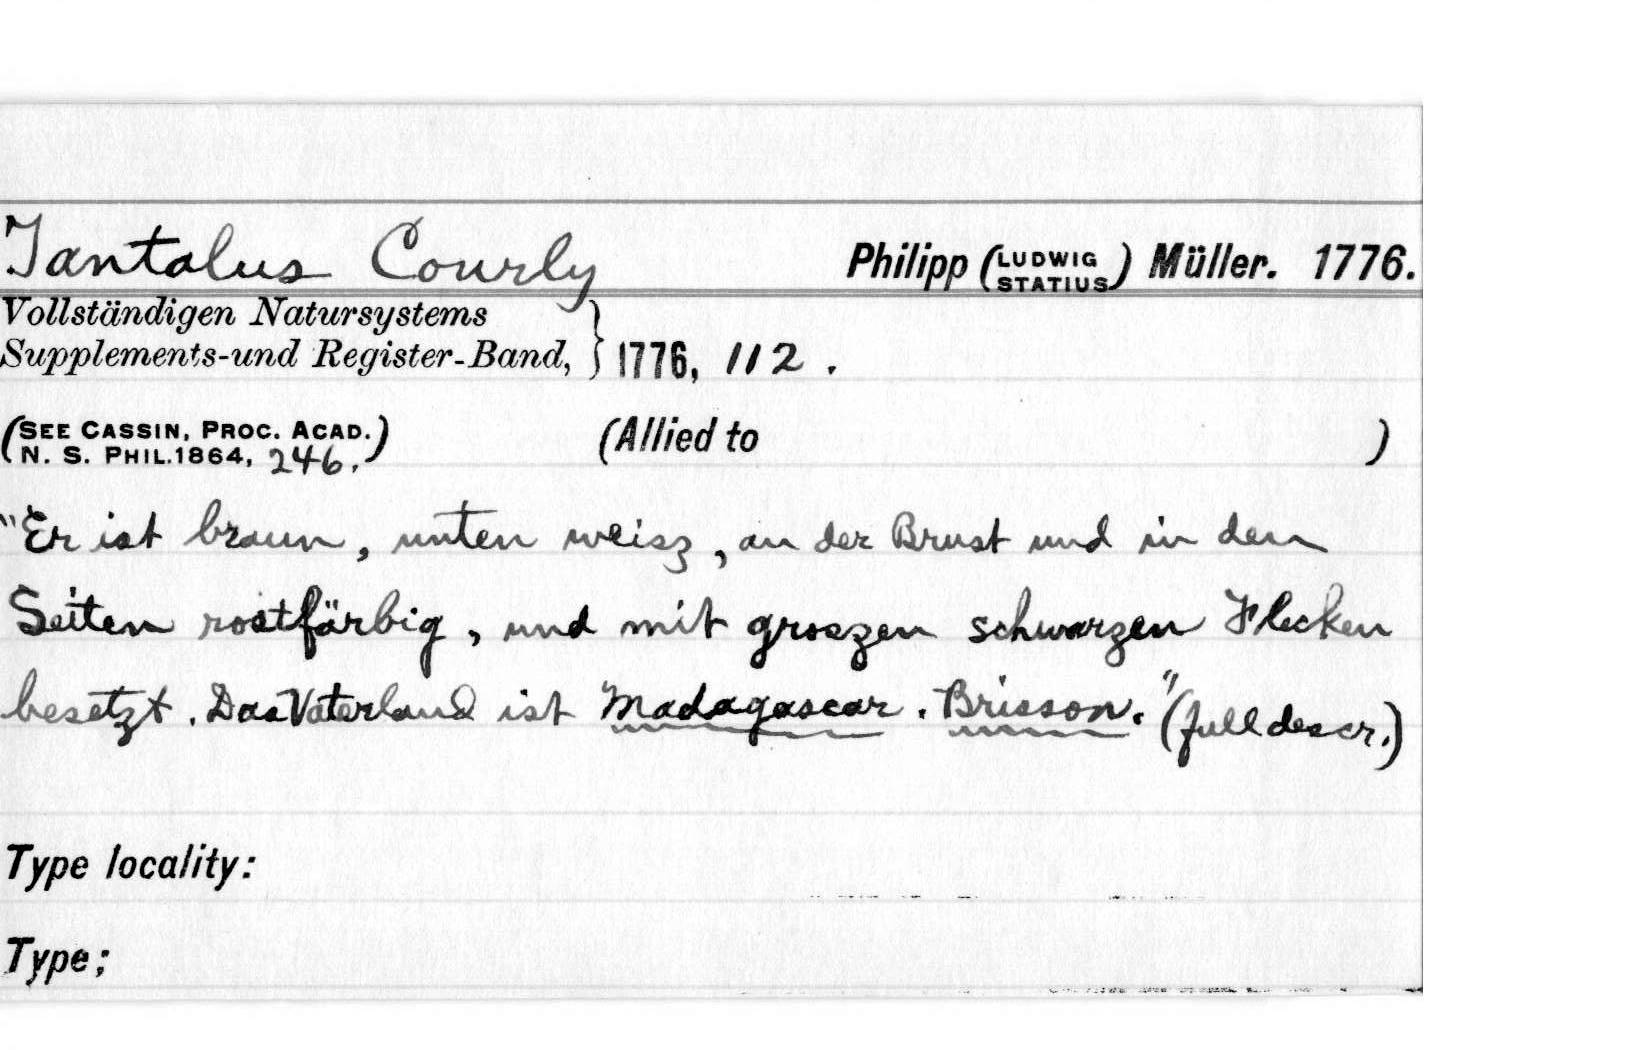 Tantalus Courly Philipp (LUDWIG STATIUS) Müller. 1776.
Vollständigen Natursystems
Supplements-und Register-Band, } 1776, 112.
(SEE CASSIN, PROC. ACAD. (Allied to )
N. S. PHIL. 1864, 246.)
"Er ist braun, unten weisz, an der Brust und in den
Seiten rostfärbig, und mit groszen schwarzen Flecken
besetzt. Das Vaterland ist Madagascar. Brisson." (full descr.)
Type locality:
Type;